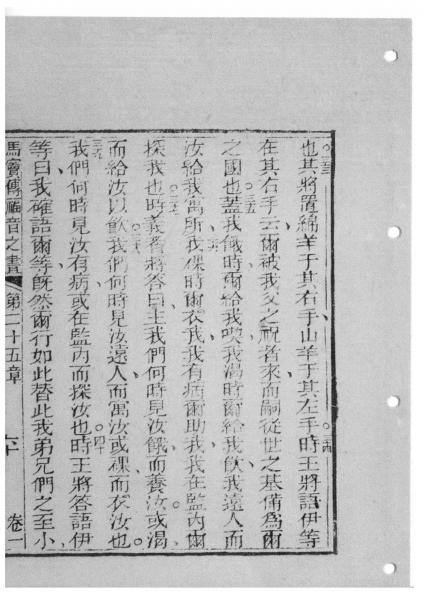 三三也其將置綿羊于其右手山羊于其左手三四時王將語伊等
在其右手云爾被我父之祝者來而嗣從世之基備爲爾
之國也三五蓋我餓時爾給我喫我渴時爾給我飲我遠人而
汝給我寓所三六我裸時爾衣我我有病爾助我我在監內爾
探我也三七時義者將答曰主我們何時見汝餓而養汝或渴
而給汝以飲三八我們何時見汝遠人而寓汝或裸而衣汝也
三九我們何時見汝有病或在監內而探汝也四十時王將答語伊
等曰我確語爾等既然爾行如此替此我弟兄們之至小
馬竇傳福音之書 第二十五章 六十 卷一